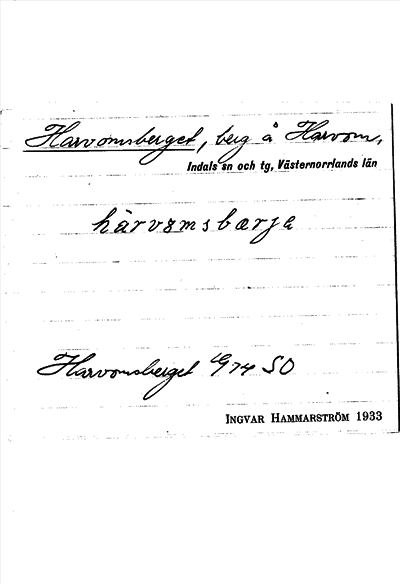 Harvomsberget, berg å Harvom,
Indals sn och tg, Västernorrlands län
hàrvɷmsbærja
Harvomsberget G74 SO
INGVAR HAMMARSTRÖM 1933